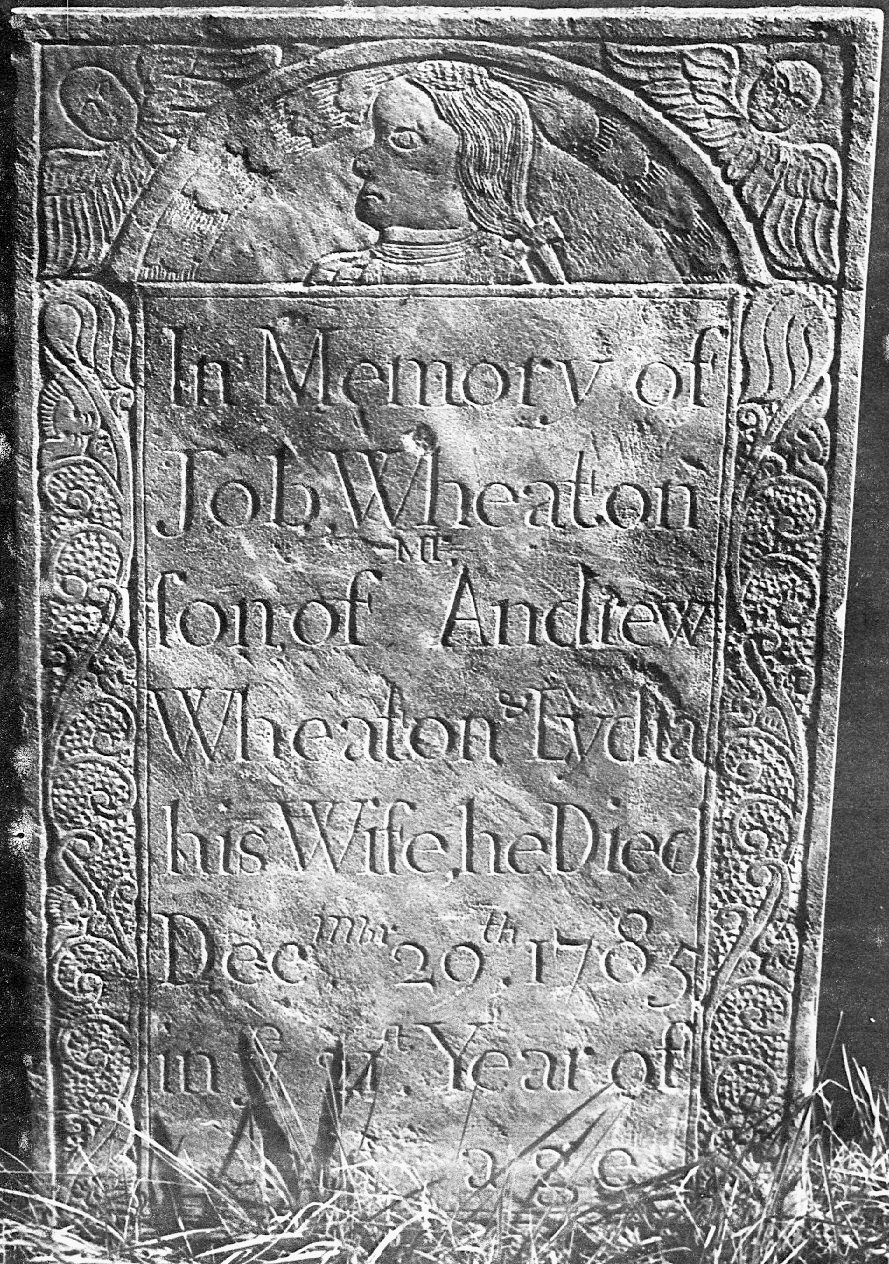 In Memory of
Job, Wheaton
Mr
ſon of Andrew
Wheaton & Lydia
his Wife, he Died
Dec,mbr 29,th 1785
in ye Year of
age